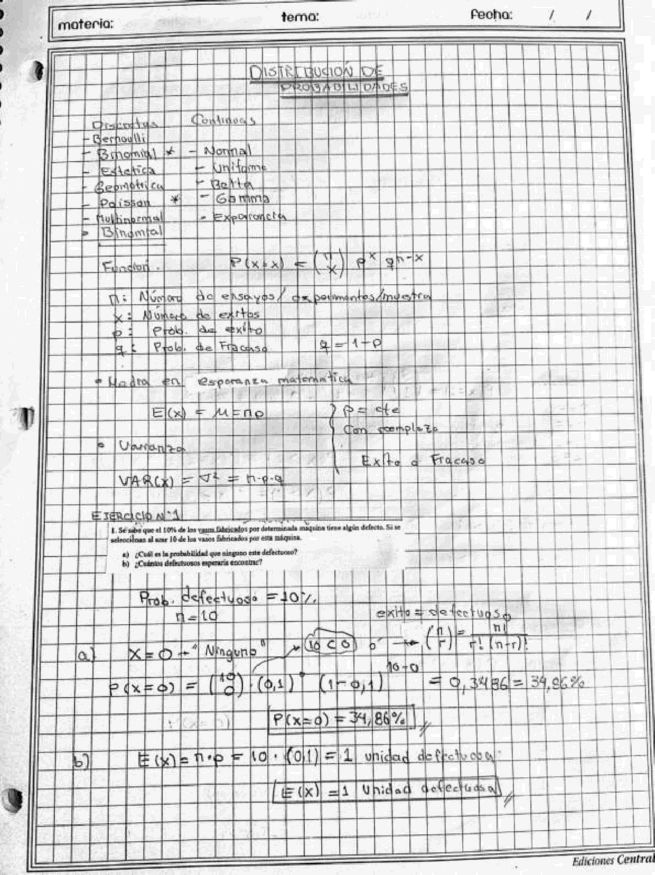 materia: tema: Fecha: / /
DISTRIBUCIÓN DE
PROBABILIDADES
Discretas Continuas
- Bernoulli
- Binomial * - Normal
- Estetica - Uniforme
- Geometrica - Betta
- Poisson * - Gamma
- Multinormal - Exponencia
• Binomial
Función. P(x=x) = (n x) p^x q^n-x
n: Número de ensayos/experimentos/muestra
x: Número de exitos
p: Prob. de exito
q: Prob. de Fracaso q = 1-p
• Madra en esperanza matematica
E(x) = μ = np p = cte
Con reemplazo
• Varianza
Exito o Fracaso
VAR(x) = σ² = n·p·q
EJERCICIO N°1
1. Se sabe que el 10% de los vasos fabricados por determinada maquina tiene algún defecto. Si se
seleccionan al azar 10 de los vasos fabricados por esta máquina.
a) ¿Cuál es la probabilidad que ninguno este defectuoso?
b) ¿Cuántos defectuosos esperaría encontrar?
Prob. defectuoso = 10%
n = 10 exito = defectuoso
a) X = 0 → "Ninguno" 10 C 0 o' → (n r) = n! / r! (n-r)!
P(x=0) = (10 0) · (0,1)^0 (1-0,1)^10-0 = 0,3486 = 34,86%
P(x=0) = 34,86%
b) E(x) = n·p = 10 · (0,1) = 1 unidad defectuosa
E(x) = 1 Unidad defectuosa
Ediciones Central